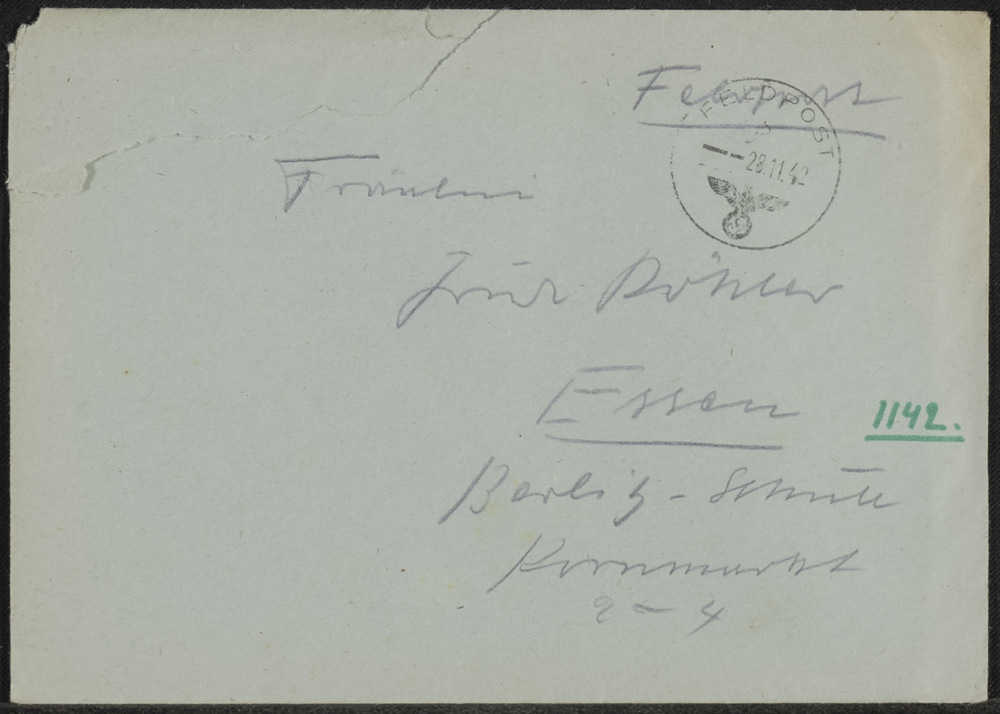 Feldpost
FELDPOST
b
28.11.42
Fräulein
Trude Köhler
Essen
1142.
Berlitz-Schule
Kornmarkt
2-4